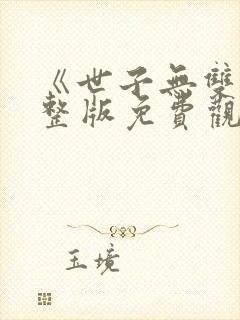 《世子無雙
整版免費觀
玉境